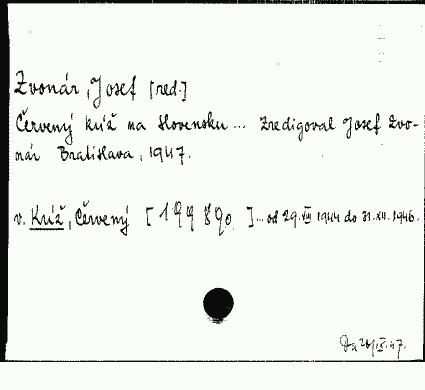 Zvonár, Josef [red.]
Červený kríž na Slovensku ... Zredigoval Josef Zvo-
nár Bratislava, 1947.
v. Kríž, Červený [199890] ... od 29.VIII 1944 do 31.XII.1946.
IX.47.